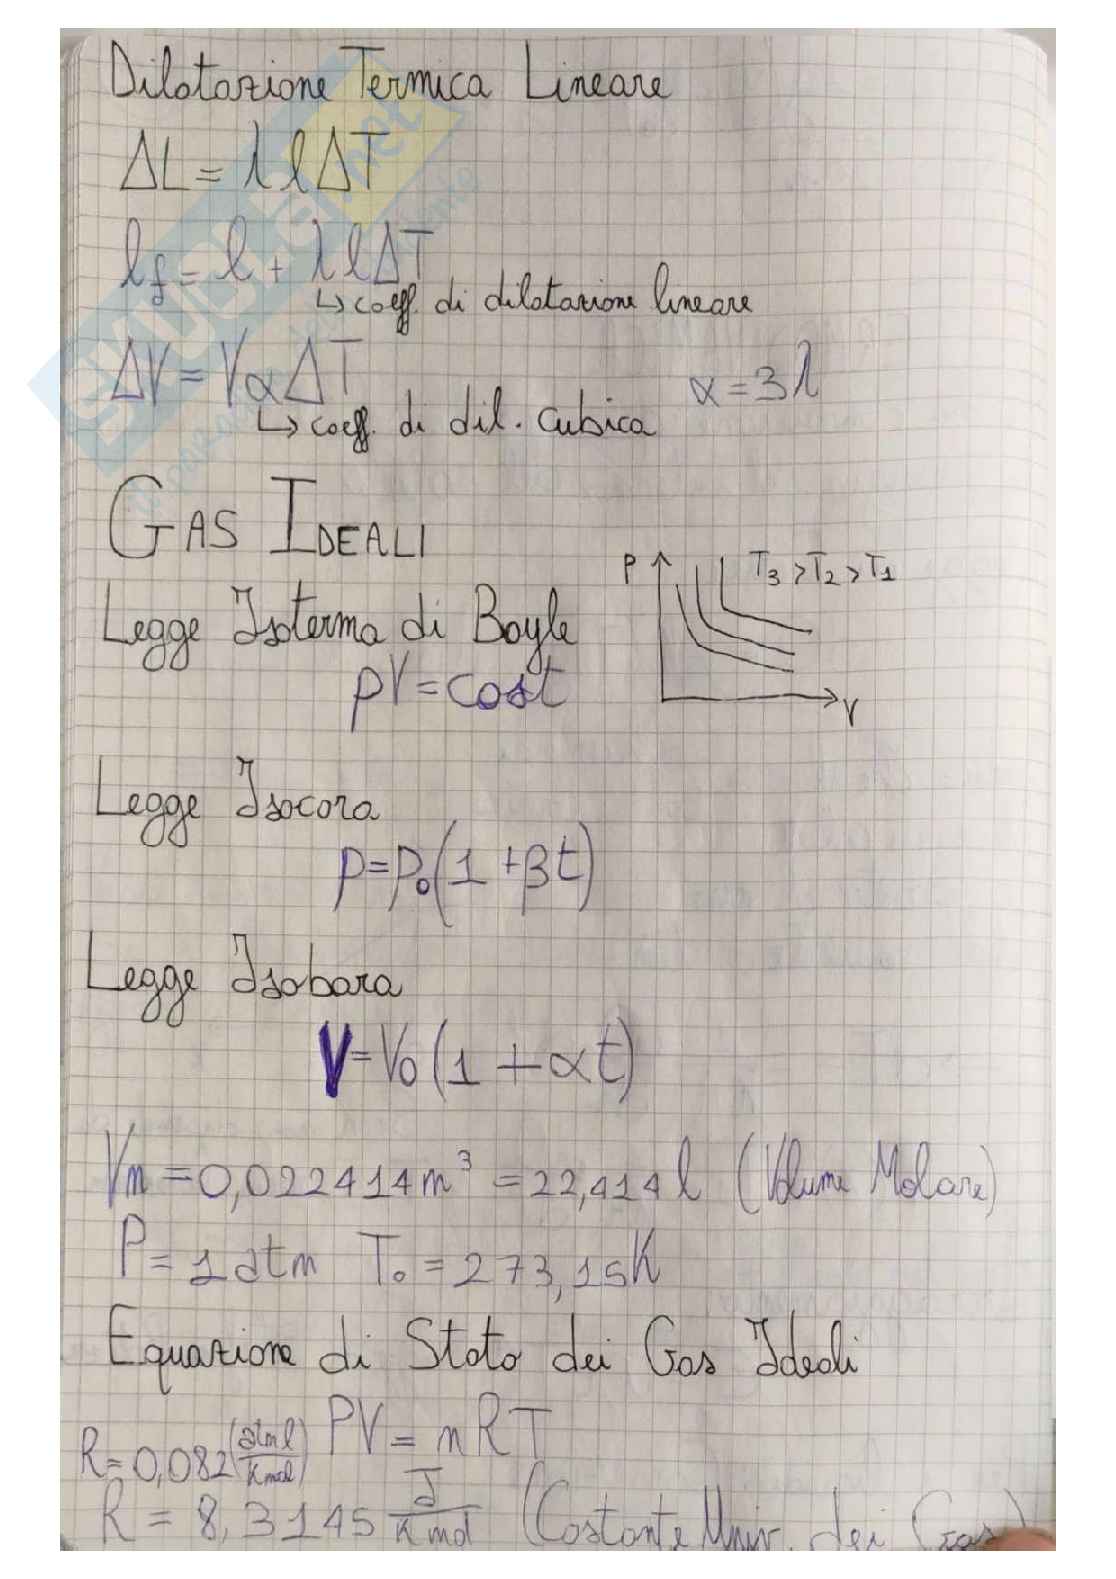 Dilatazione Termica Lineare
ΔL = λ l ΔT
lf = l + λ l ΔT
↳ coeff. di dilatazione lineare
ΔV = V α ΔT α = 3λ
↳ coeff. di dil. cubica
GAS IDEALI
P T3 > T2 > T1
Legge Isoterma di Boyle
pV = cost
V
Legge Isocora
p = p0 (1 + βt)
Legge Isobara
V = V0 (1 + αt)
Vm = 0,022414 m³ = 22,414 l (Volume Molare)
P = 1 atm T0 = 273,15K
Equazione di Stato dei Gas Ideali
PV = nRT
R = 0,082 (atm l / K mol)
R = 8,3145 J / K mol (Costante Univ. dei Gas)
SKUOLA.net